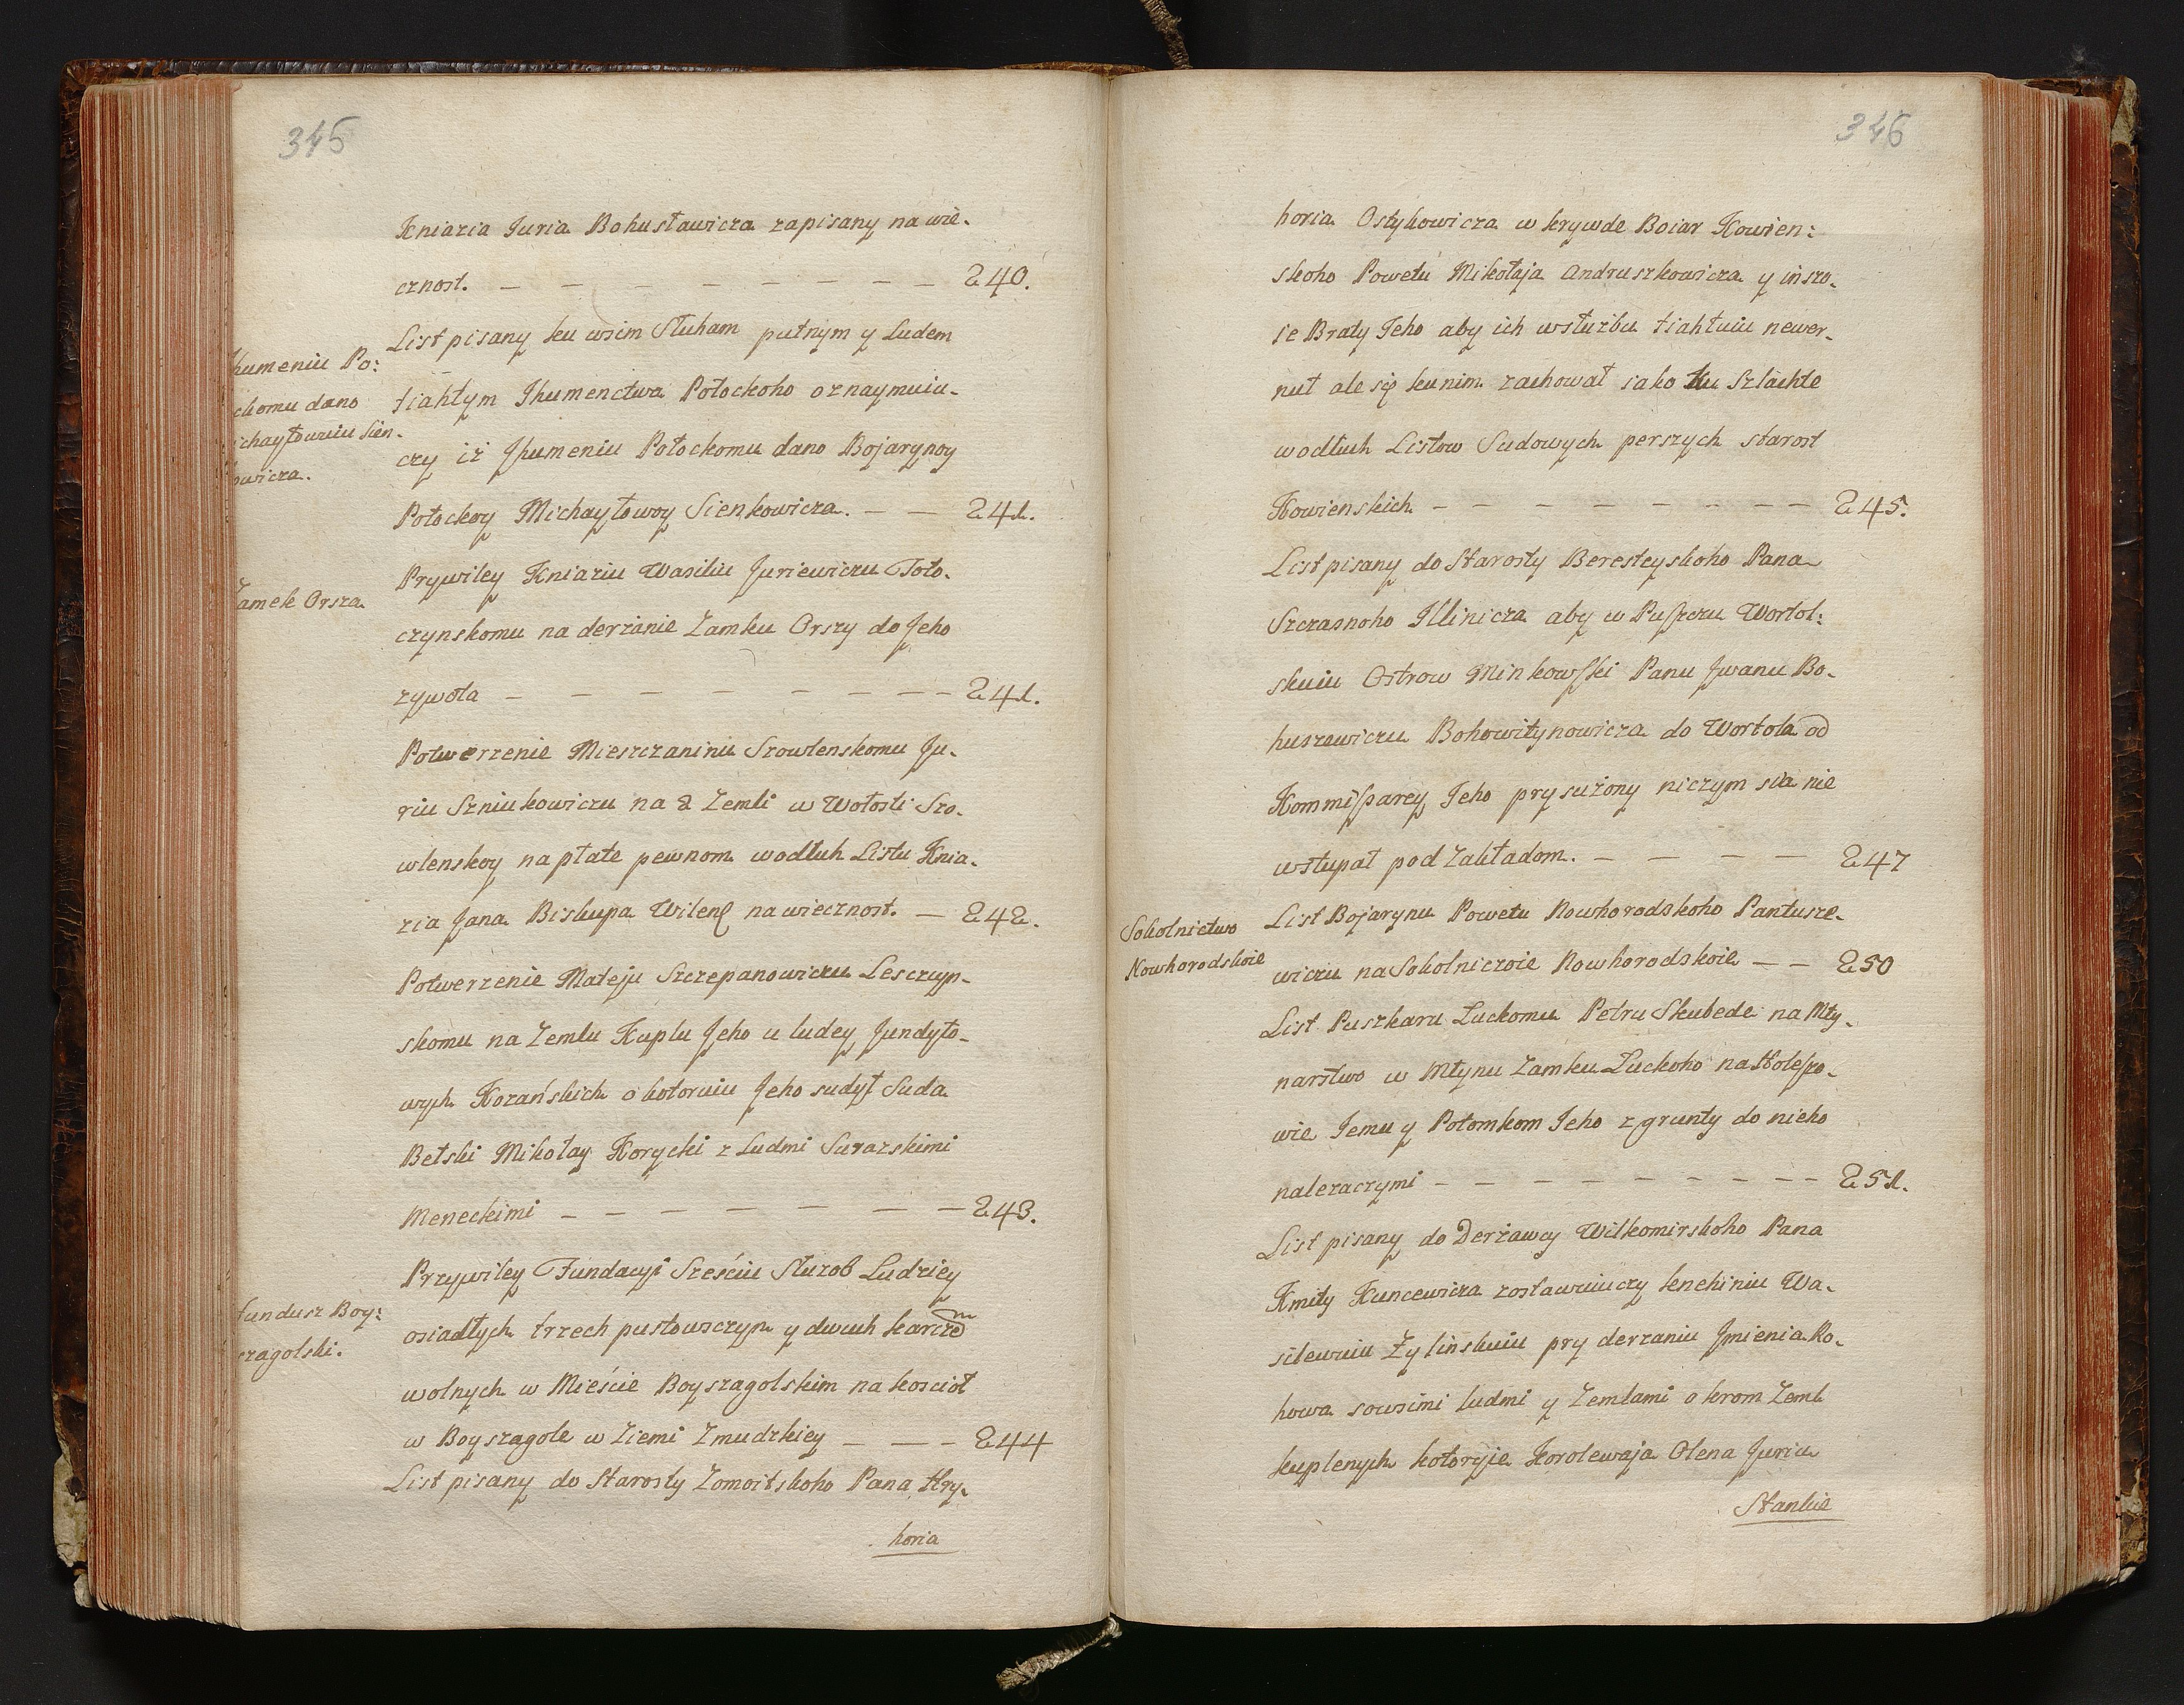 345
Kniazia Juria Bohusławicza zapisany na wie-
cznost. — — — — — — — — 240.
List pisany ku wsim Sluham putnym y Ludem
humeniu Po:
ckomu dano
ichayłowuiu Sien-
owicza.
tiahłym Ihumenctwa Połockoho oznaymuiu-
czy iż Jhumeniu Połockomu dano Bojarynoy
Połockoy Michayłowoy Sienkowicza. — — 241.
Prywiley Kniaziu Wasiliu Juriewiczu Toło-
Zamek Orsza
czynskomu na derżanie Zamku Orszy do Jeho
zywota — — — — — — — — 241.
Potwerzenie Mieszczaninu Szowlenskomu Ju-
riu Szniukowiczu na 2 Zemli w Wołosti Szo-
wlenskoy na płate pewnom wodłuh Listu Knia-
zia Jana Biskupa Wilen na wiecznost. — 242.
Potwerzenie Mateju Szczepanowiczu Lesczyn-
skomu na Zemlu Kuplu Jeho u ludey Jundyło-
wych Kozańskich o kotoruiu Jeho sudył Suda
Betski Mikołay Korycki z Ludmi Surazskimi
Meneckimi — — — — — — — 243.
Przywiley Fundacyi Sześciu Słuzob Ludziey
fundusz Boy:
szagolski.
osiadłych trzech pustowszczyn y dwuch karczem
wolnych w Mieście Boyszagolskim na kosciół
w Boyszagole w Ziemi Zmudzkiey — — — 244
List pisany do Starosty Zomoitskoho Pana Hry-
horia
346
horia Ostykowicza w krywde Boiar Kowien:
skoho Powetu Mikołaja Andruszkowicza y inszo-
ie Braty Jeho aby ich wsłuzbu tiahłuiu newer-
nuł ale się kunim zachował iako ku Szlachte
wodłuh Listow Sudowych perszych starost
Kowienskich — — — — — — — — 245.
List pisany do Starosty Beresteyskoho Pana
Szczasnoho Illinicza aby w Puszczu Wortol:
skuiu Ostrow Minkowski Panu Jwanu Bo-
huszewiczu Bohowitynowicza do Wortola od
Kommissarey Jeho prysużony niczym sia nie
wstupał pod Zakładom. — — — — 247
Sokolnictwo
Nowhorodskoie
List Bojarynu Powetu Nowhorodskoho Pantusze-
wiczu na Sokolniczoie Nowhorodskoie — — 250
List Puszkaru Łuckomu Petru Skubede na Mły-
narstwo w Młynu Zamku Łuckoho na Hołeszo-
wie Jemu y Potomkom Jeho z grunty do nieho
nalezaczymi — — — — — — — — 251.
List pisany do Derżawcy Wilkomirskoho Pana
Kmity Kuncewicza zostawuiuczy knehiniu Wa-
silewuiu Żylinskuiu pry derzaniu Jmienia Ro-
howa sowsimi ludmi y Zemlami okrom Zeml
kuplenych kotoryje Korolewaja Olena Juriu
Stankie